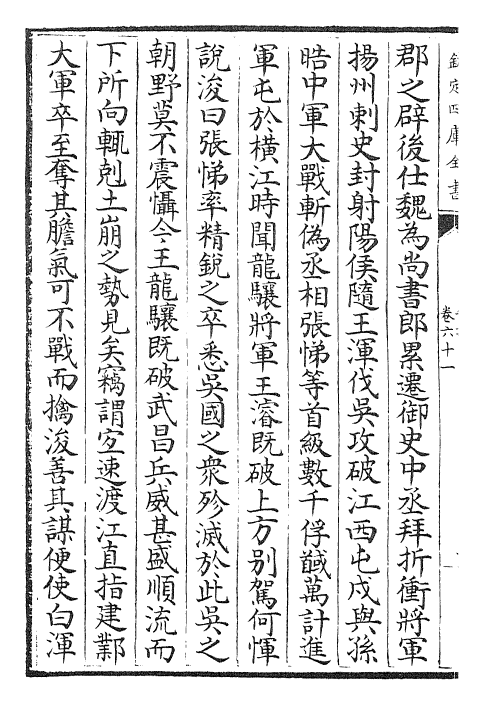 欽定四庫全書
卷六十一
郡之辟後仕魏為尚書郎累遷御史中丞拜折衝將軍
揚州刺史封射陽侯隨王渾伐吳攻破江西屯戍與孫
皓中軍大戰斬偽丞相張悌等首級數千俘馘萬計進
軍屯於橫江時聞龍驤將軍王濬既破上方别駕何惲
說浚曰張悌率精銳之卒悉吳國之衆殄滅於此吳之
朝野莫不震懾今王龍驤既破武昌兵威甚盛順流而
下所向輒剋土崩之勢見矣竊謂宜速渡江直指建鄴
大軍卒至奪其膽氣可不戰而擒浚善其謀便使白渾